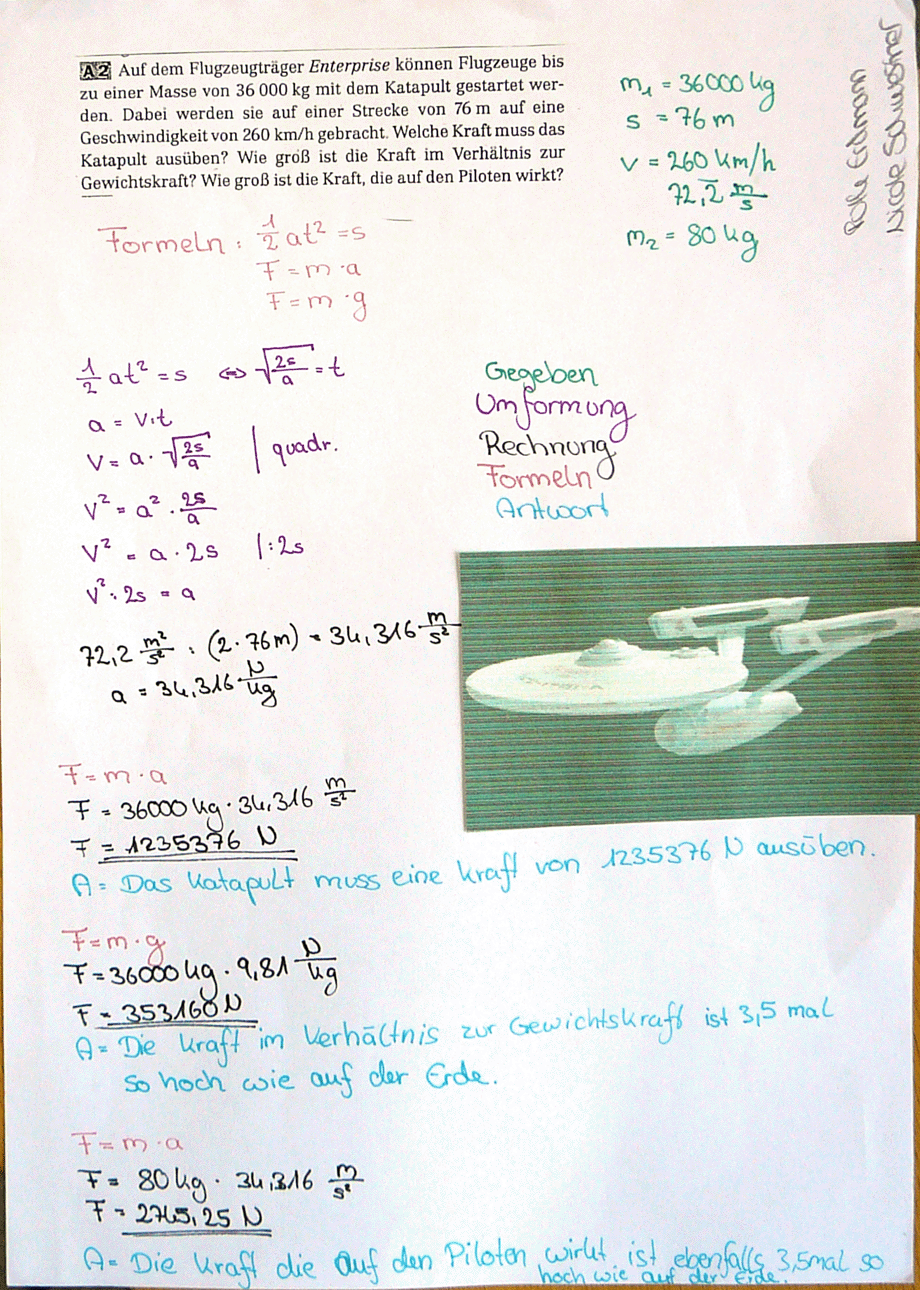 A2 Auf dem Flugzeugträger Enterprise können Flugzeuge bis
zu einer Masse von 36 000 kg mit dem Katapult gestartet wer-
den. Dabei werden sie auf einer Strecke von 76 m auf eine
Geschwindigkeit von 260 km/h gebracht. Welche Kraft muss das
Katapult ausüben? Wie groß ist die Kraft im Verhältnis zur
Gewichtskraft? Wie groß ist die Kraft, die auf den Piloten wirkt?
m₁ = 36000 kg
s = 76 m
v = 260 km/h
72,2̅ m/s
m₂ = 80 kg
Erdmann
Nicole
Formeln: 1/2 at² = s
F = m · a
F = m · g
1/2 at² = s ⇔ √(2s/a) = t
a = v·t
v = a · √(2s/a) | quadr.
v² = a² · 2s/a
v² = a · 2s |:2s
v² : 2s = a
Gegeben
Umformung
Rechnung
Formeln
Antwort
72,2 m²/s² : (2 · 76m) = 34,316 m/s²
a = 34,316 N/kg
F = m · a
F = 36000 kg · 34,316 m/s²
F = 1235376 N
A= Das Katapult muss eine Kraft von 1235376 N ausüben.
F = m · g
F = 36000 kg · 9,81 N/kg
F = 353160 N
A= Die Kraft im Verhältnis zur Gewichtskraft ist 3,5 mal
so hoch wie auf der Erde.
F = m · a
F = 80 kg · 34,316 m/s²
F = 2745,25 N
A= Die Kraft die auf den Piloten wirkt ist ebenfalls 3,5mal so
hoch wie auf der Erde.